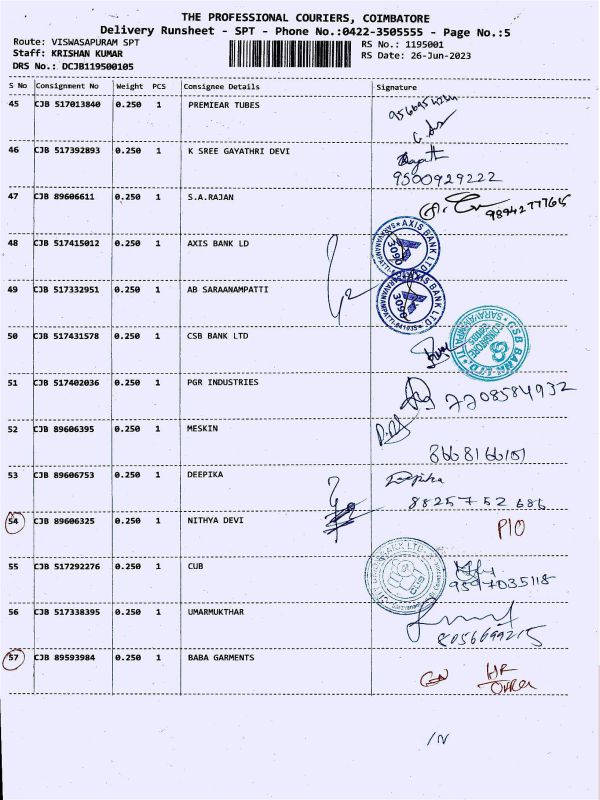 THE PROFESSIONAL COURIERS, COIMBATORE
Delivery Runsheet - SPT - Phone No.:0422-3505555 - Page No.:5
Route: VISWASAPURAM SPT
RS No.: 1195001
Staff: KRISHAN KUMAR
RS Date: 26-Jun-2023
DRS No.: DCJB119500105
S No Consignment No Weight PCS Consignee Details Signature
45 CJB 517013840 0.250 1 PREMIEAR TUBES
46 CJB 517392893 0.250 1 K SREE GAYATHRI DEVI
9500929222
47 CJB 89606611 0.250 1 S.A.RAJAN
9894277765
48 CJB 517415012 0.250 1 AXIS BANK LD
AXIS BANK LTD
3090
49 CJB 517332951 0.250 1 AB SARAANAMPATTI
AXIS BANK LTD
3090
50 CJB 517431578 0.250 1 CSB BANK LTD
CSB BANK LTD.
51 CJB 517402036 0.250 1 PGR INDUSTRIES
7708584932
52 CJB 89606395 0.250 1 MESKIN
8668166101
53 CJB 89606753 0.250 1 DEEPIKA
Deepika
8825752686
54 CJB 89606325 0.250 1 NITHYA DEVI
P10
55 CJB 517292276 0.250 1 CUB
CUB
9597035118
56 CJB 517338395 0.250 1 UMARMUKTHAR
8056699215
57 CJB 89593984 0.250 1 BABA GARMENTS